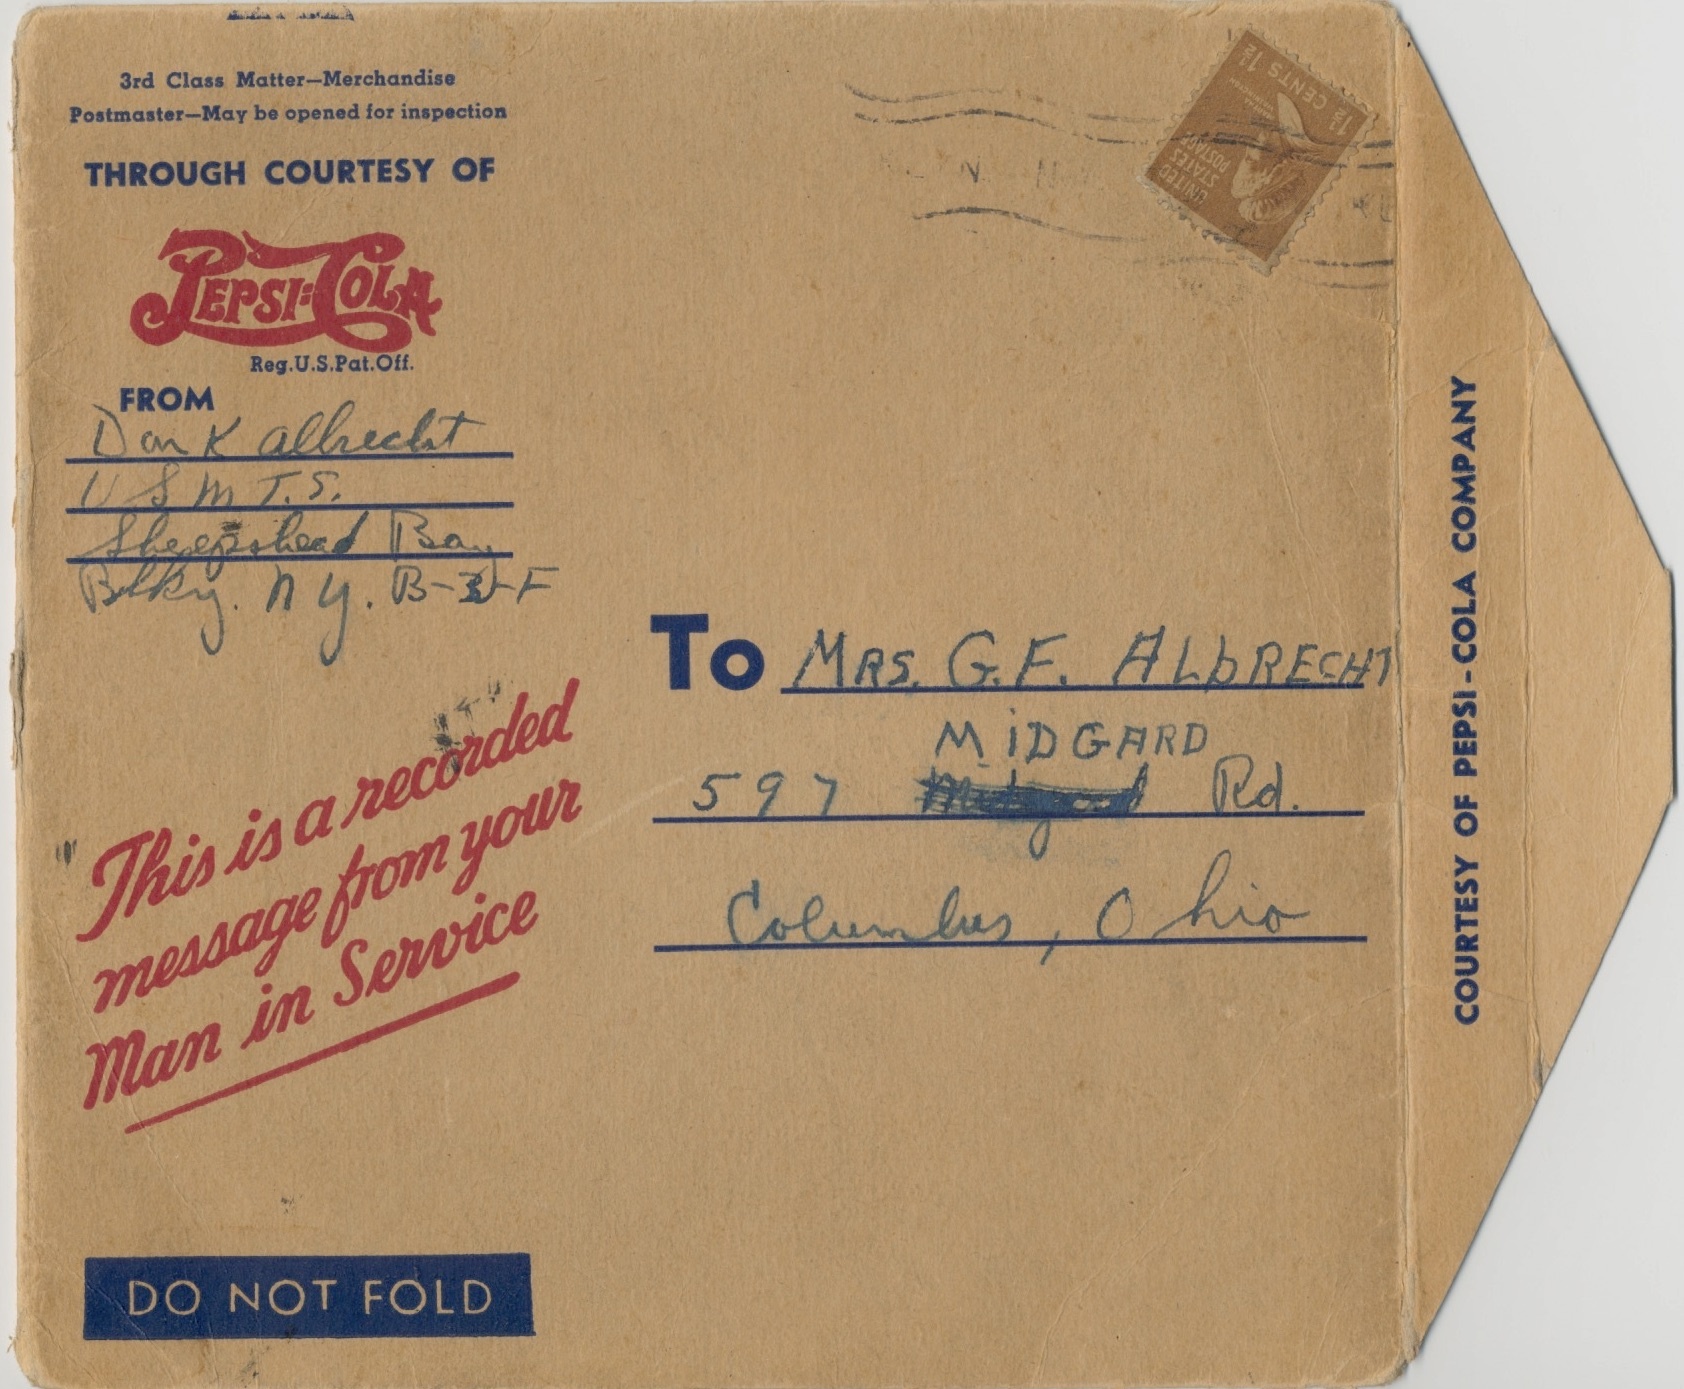 3rd Class Matter—Merchandise
Postmaster—May be opened for inspection
THROUGH COURTESY OF
PEPSI-COLA
Reg.U.S.Pat.Off.
FROM
Don K Albrecht
U S M T. S.
Sheepshead Bay
Bklyn. N Y. B-F
This is a recorded
message from your
Man in Service
DO NOT FOLD
1½ CENTS 1½
UNITED
STATES
POSTAGE
To MRS. G.F. ALbRECHT
MiDGARD
597 Rd.
Columbus, Ohio
COURTESY OF PEPSI-COLA COMPANY